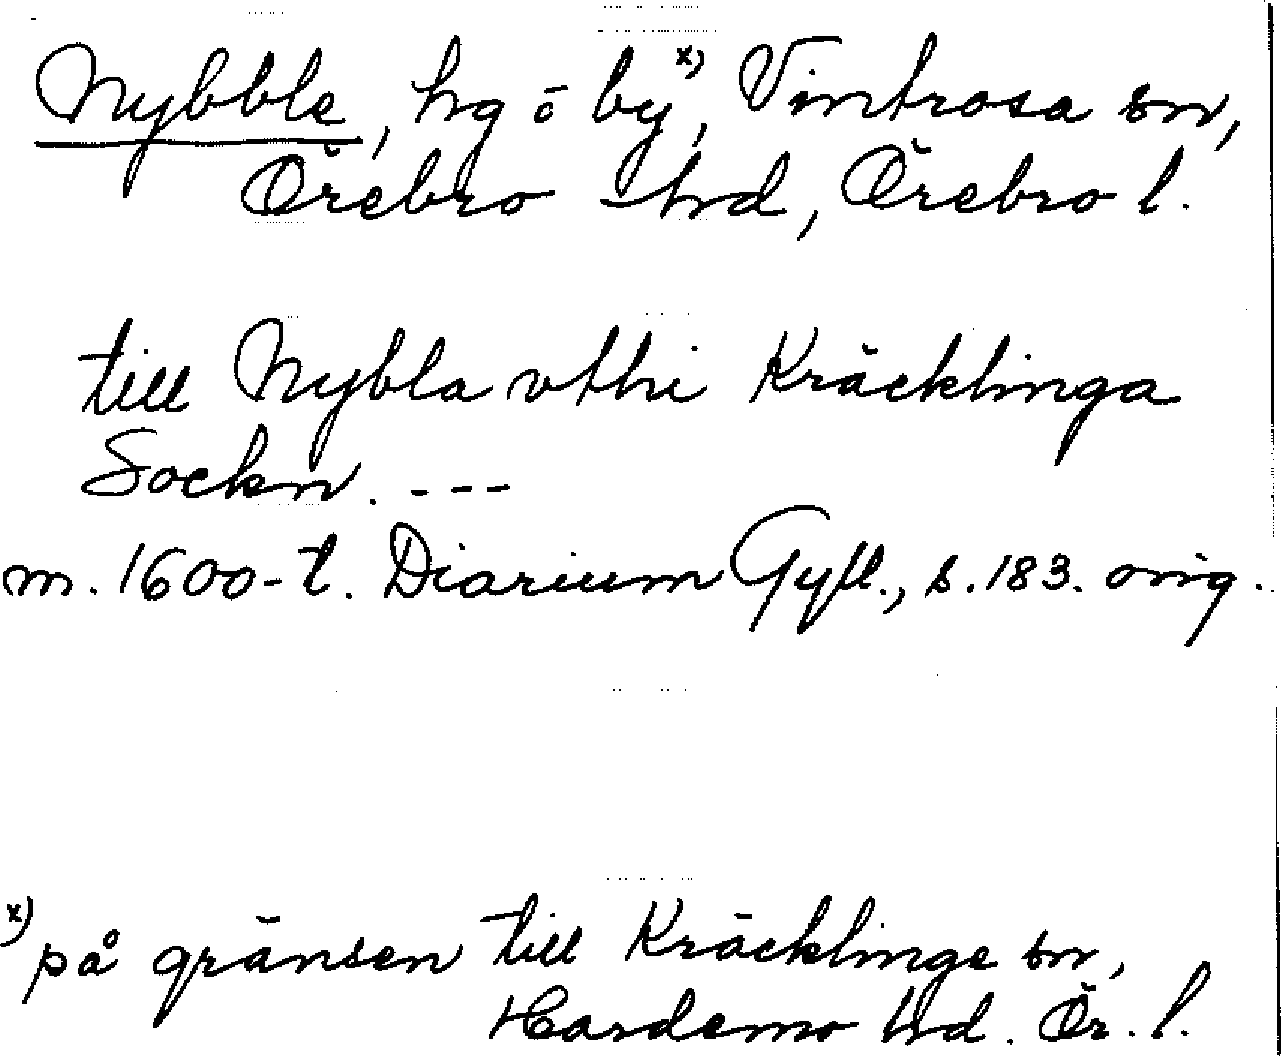 Nybble, hg o by x), Vintrosa sn,
Örebro hd, Örebro l.
till Nybla vthi Kräcklinga
Sockn. ---
m. 1600-t. Diarium Gyll., s. 183. orig.
x) på gränsen till Kräcklinge sn,
Hardemo hd. Ör. l.